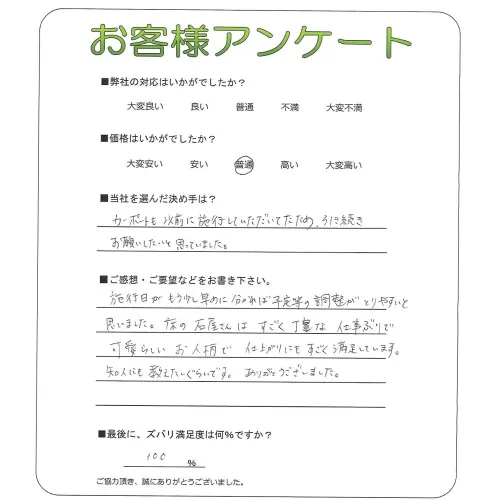 お客様アンケート
■弊社の対応はいかがでしたか？
大変良い 良い 普通 不満 大変不満
■価格はいかがでしたか？
大変安い 安い 普通 高い 大変高い
■当社を選んだ決め手は？
カーポートも以前に施行していただいてたため、引き続き
お願いしたいと思っていました。
■ご感想・ご要望などをお書き下さい。
施行日がもう少し早めに分かれば予定等の調整がとりやすいと
思いました。床の石屋さんはすごく丁寧な仕事ぶりで
可愛らしいお人柄で仕上がりにもすごく満足しています。
知人にも教えたいぐらいです。ありがとうございました。
■最後に、ズバリ満足度は何%ですか？
100 %
ご協力頂き、誠にありがとうございました。